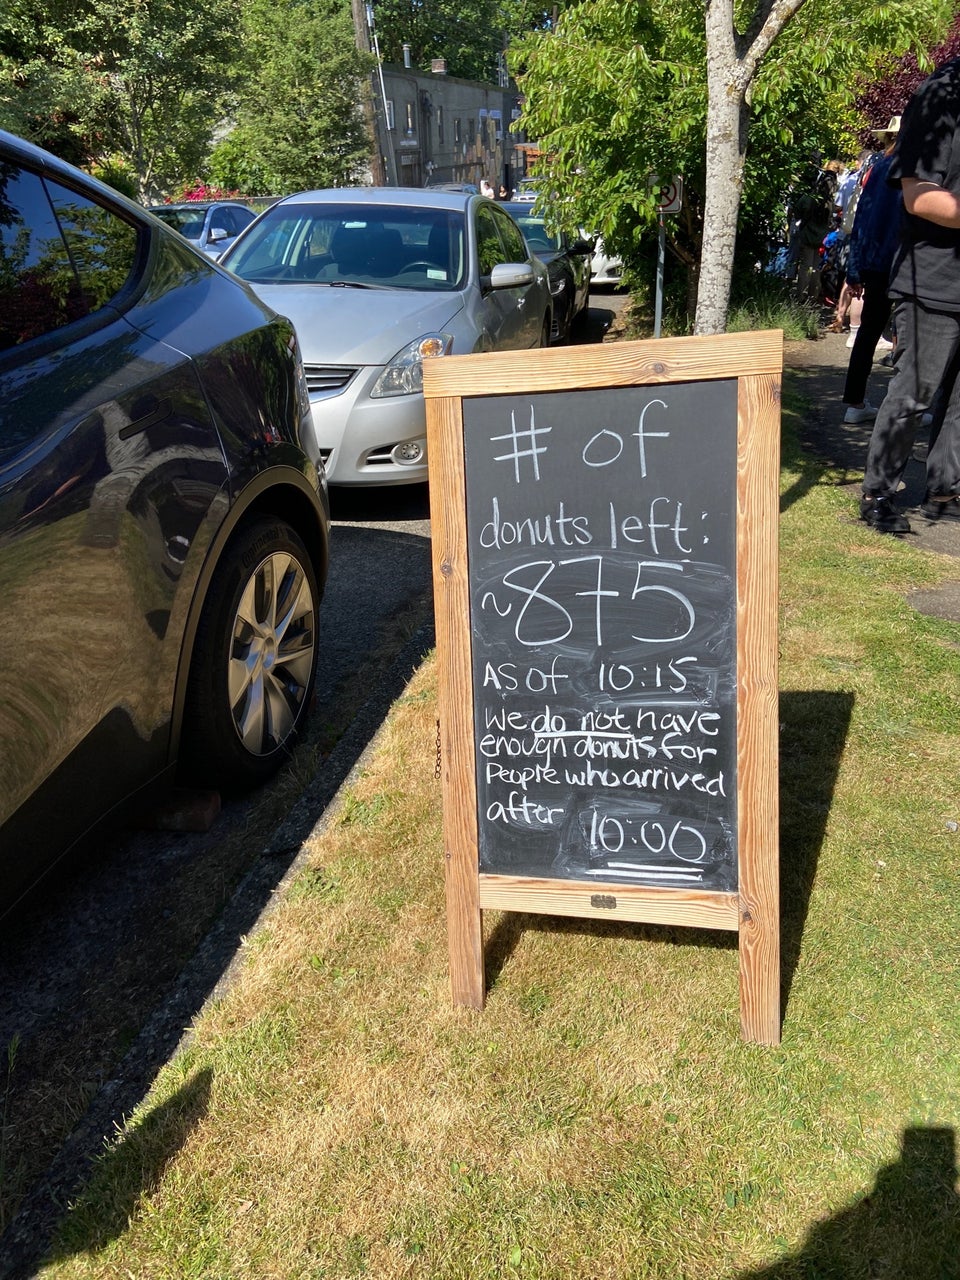 # of
donuts left:
~875
As of 10:15
We do not have
enough donuts for
People who arrived
after 10:00